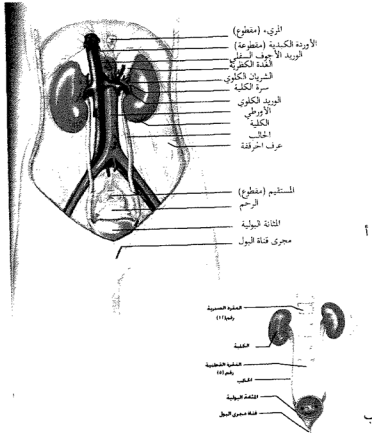 المريء (مقطوع)
الأوردة الكبدية (مقطوعة)
الوريد الأجوف السفلي
الغدة الكظرية
الشريان الكلوي
سرة الكلية
الوريد الكلوي
الأورطي
الكلية
الحالب
عرف الحرقفة
المستقيم (مقطوع)
الرحم
المثانة البولية
مجرى قناة البول
أ
الفقرة الصدرية
رقم (١٢)
الكلية
الفقرة القطنية
رقم (٥)
الحالب
المثانة البولية
قناة مجرى البول
ب